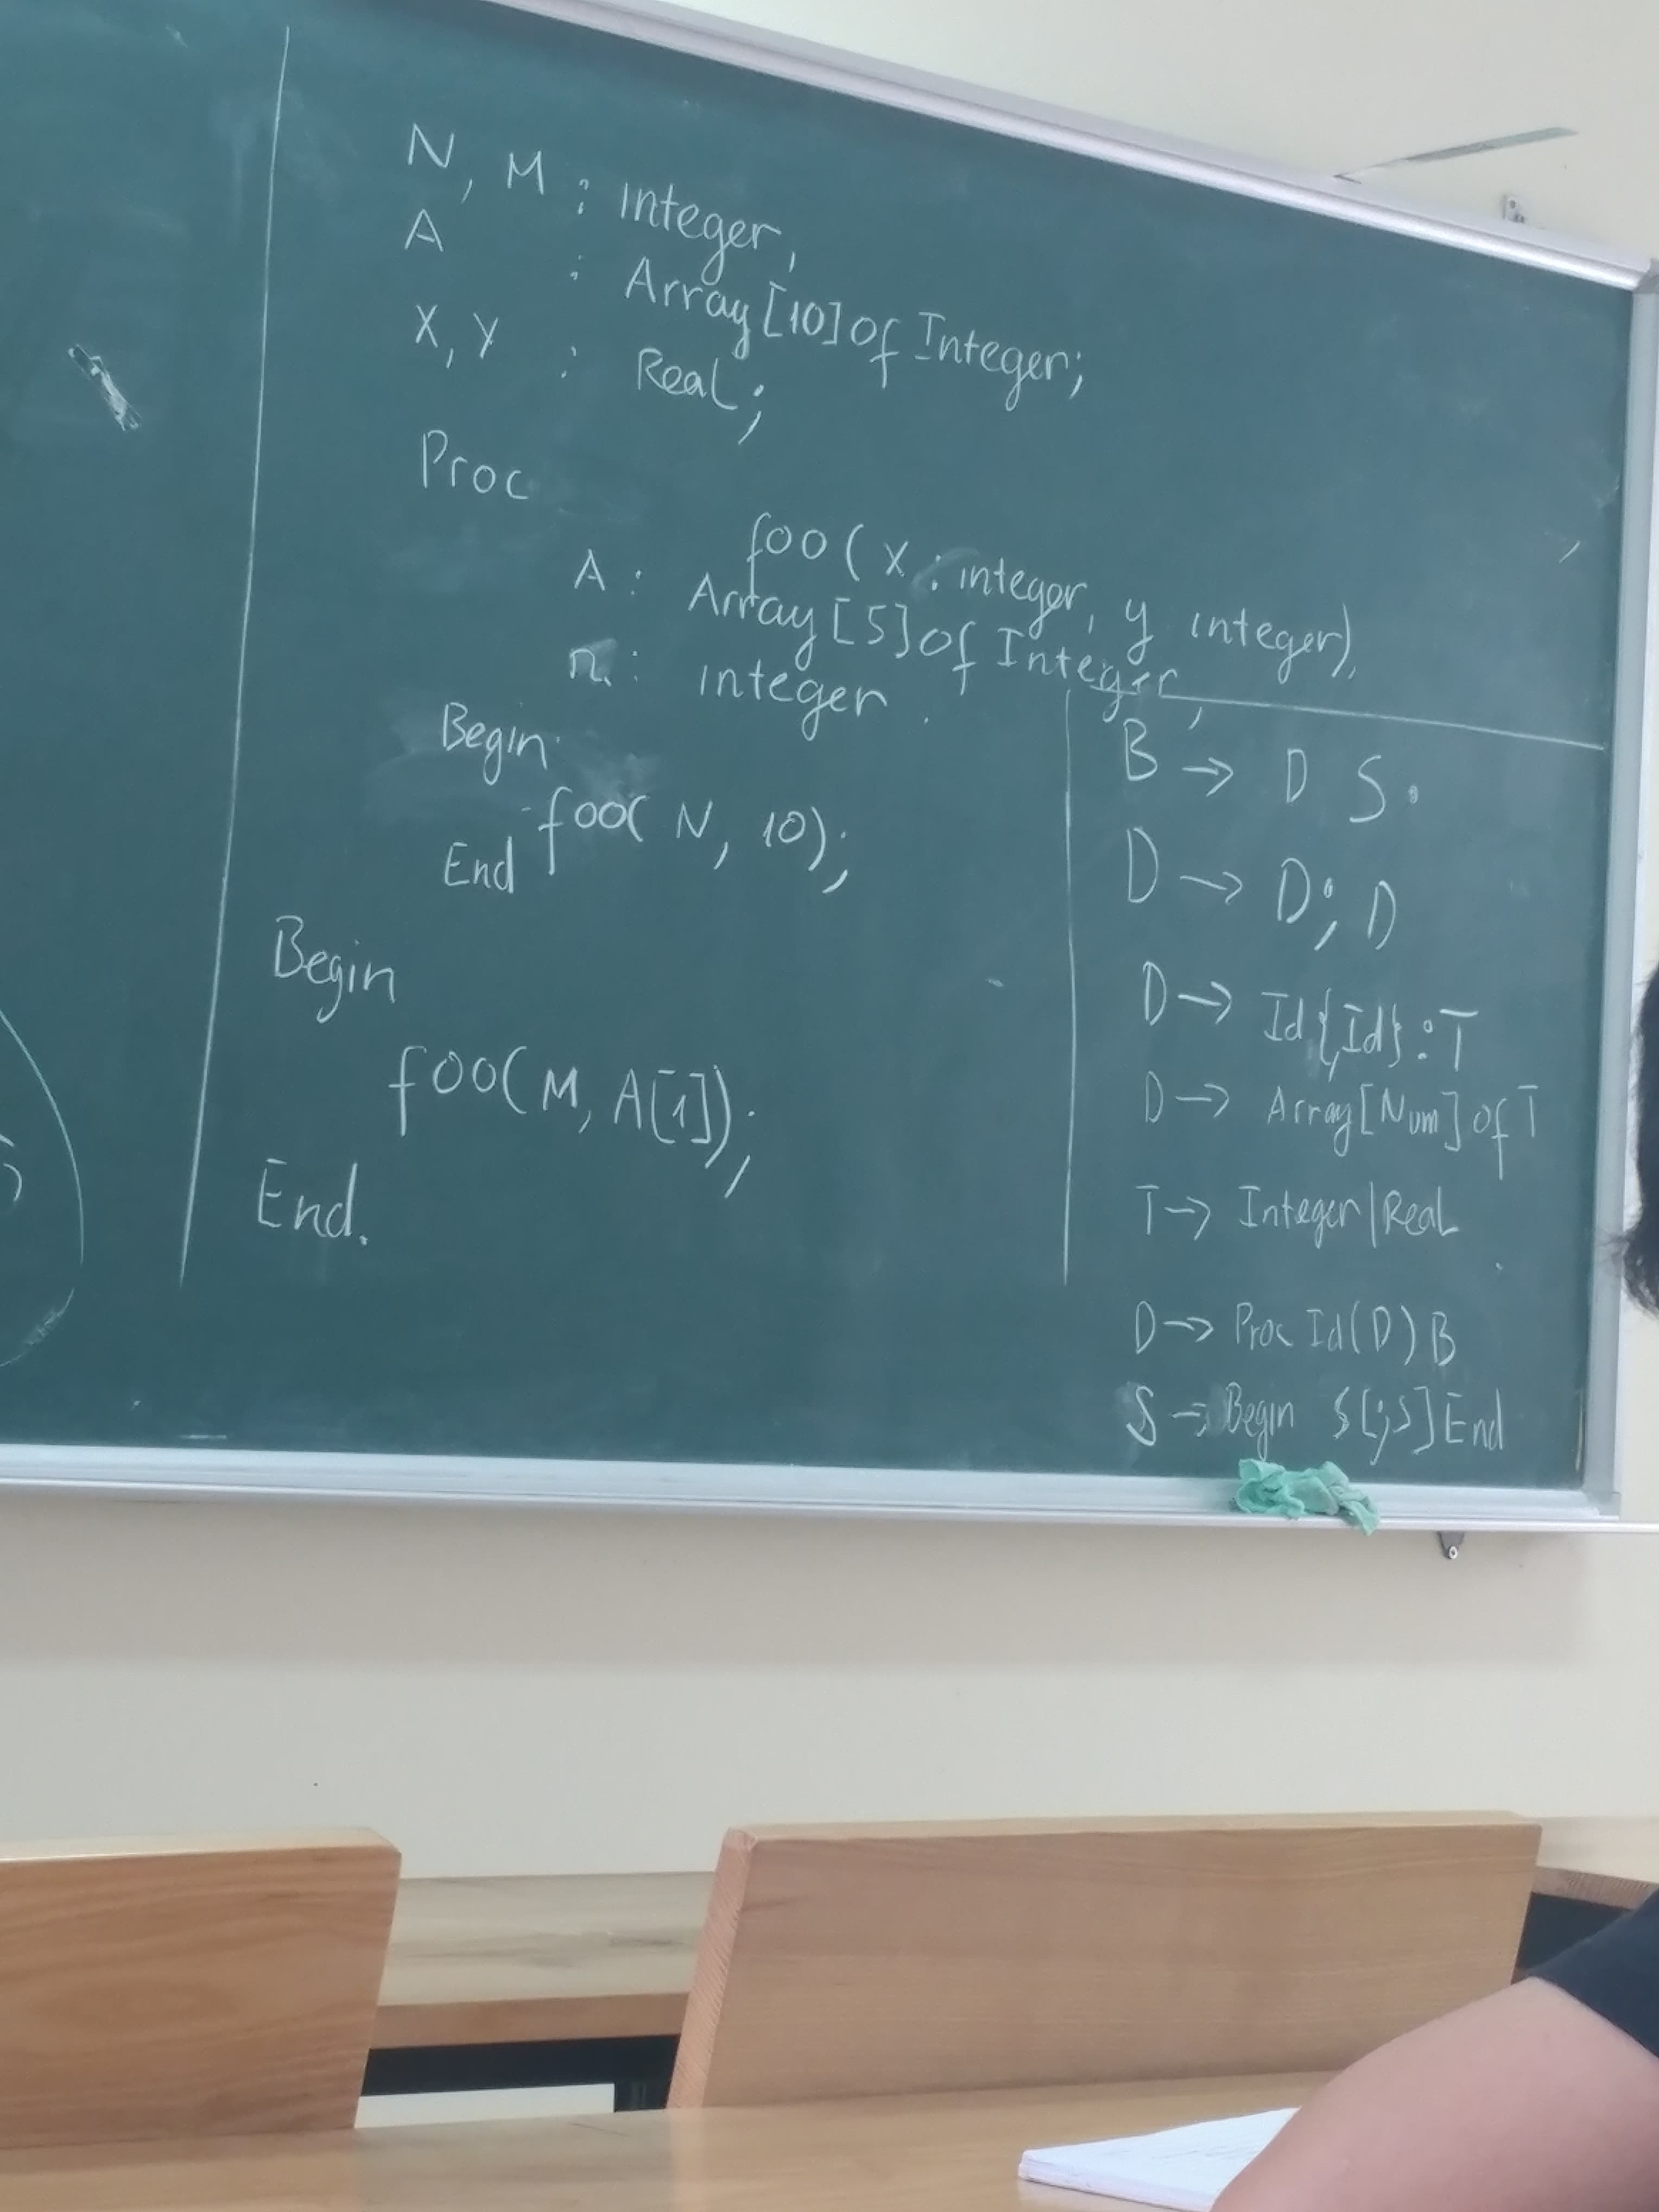 N, M : integer,
A : Array[10] of Integer;
X, Y : Real;
Proc
foo(x : integer, y integer),
A : Array[5] of Integer,
n : integer.
Begin
foo( N, 10);
End
Begin
foo(M, A[1]);
End.
B → D S.
D → D; D
D → Id{,Id} : T
D → Array[Num] of T
T → Integer|Real
D → Proc Id(D) B
S → Begin S[;S] End